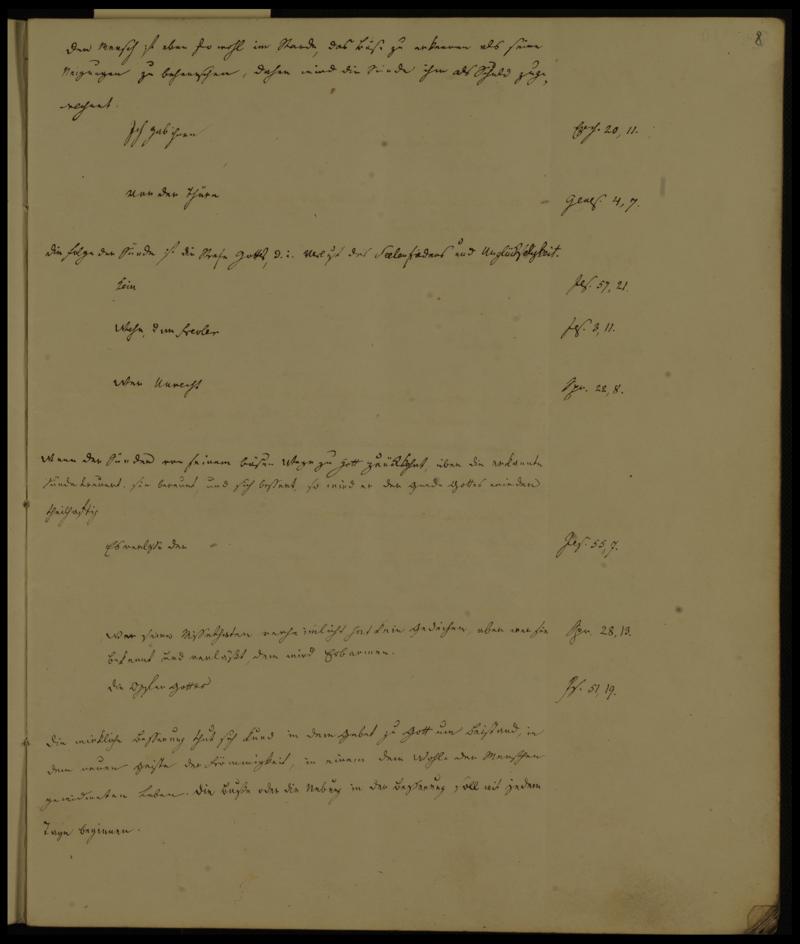 8
Der Mensch ist eben so wohl im Stande, das Böse zu erkennen als seine
Neigungen zu beherrschen, daher wird die Sünde ihm als Schuld zuge-
rechnet.
Ich gab ihnen Ezech. 20, 11.
Vor der Thüre Genes. 4, 7.
Die Folge der Sünde ist die Strafe Gottes, d. i. Verlust des Seelenfriedens und Unglückseligkeit.
Kein Jes. 57, 21.
Wehe, dem Frevler Jes. 3, 11.
Wer Unrecht Spr. 22, 8.
Wenn der Sünder von seinem bösen Wege zu Gott zurückkehrt, über die erkannte
Sünde trauert, sie bereut, und sich bessert, so wird er der Gnade Gottes wieder
theilhaftig
Es verlasse der Jes. 55, 7.
Wer seine Missethaten verheimlicht hat kein Gedeihen, aber wer sie Spr. 28, 13.
bekennt und verläßt, dem wird Erbarmen.
Die Opfer Gottes Ps. 51, 19.
Die wirkliche Besserung thut sich kund in dem Gebet zu Gott um Beistand, in
dem neuen Geiste der Frömmigkeit, in einem dem Wohle der Menschen
gewidmeten Leben. Die Buße oder die Uebung in der Besserung soll mit jedem
Tage beginnen.